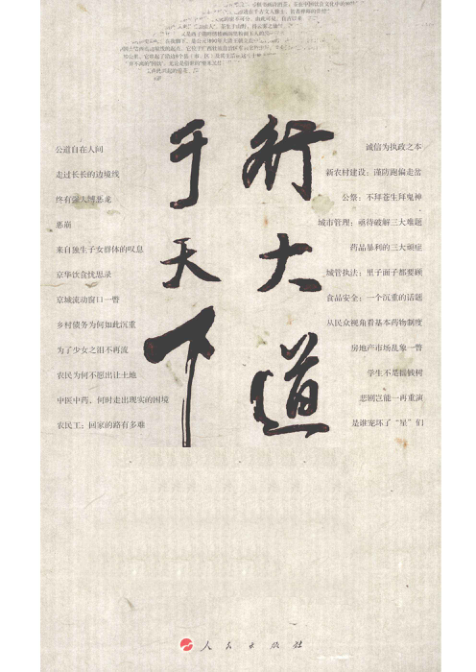 行大道
于天下
诚信为执政之本
新农村建设：谨防跑偏走岔
公祭：不拜苍生拜鬼神
城市管理：亟待破解三大难题
药品暴利的三大顽症
城管执法：里子面子都要顾
食品安全：一个沉重的话题
从民众视角看基本药物制度
房地产市场乱象一瞥
学生不是摇钱树
悲剧岂能一再重演
是谁宠坏了“星”们
公道自在人间
走过长长的边境线
终有
来自独生子女群体的叹息
京华饮食忧思录
京城流动窗口一瞥
乡村债务为何如此沉重
为了少女之泪不再流
农民为何不愿出让土地
中医中药，何时走出现实的困境
农民工：回家的路有多难
人民出版社